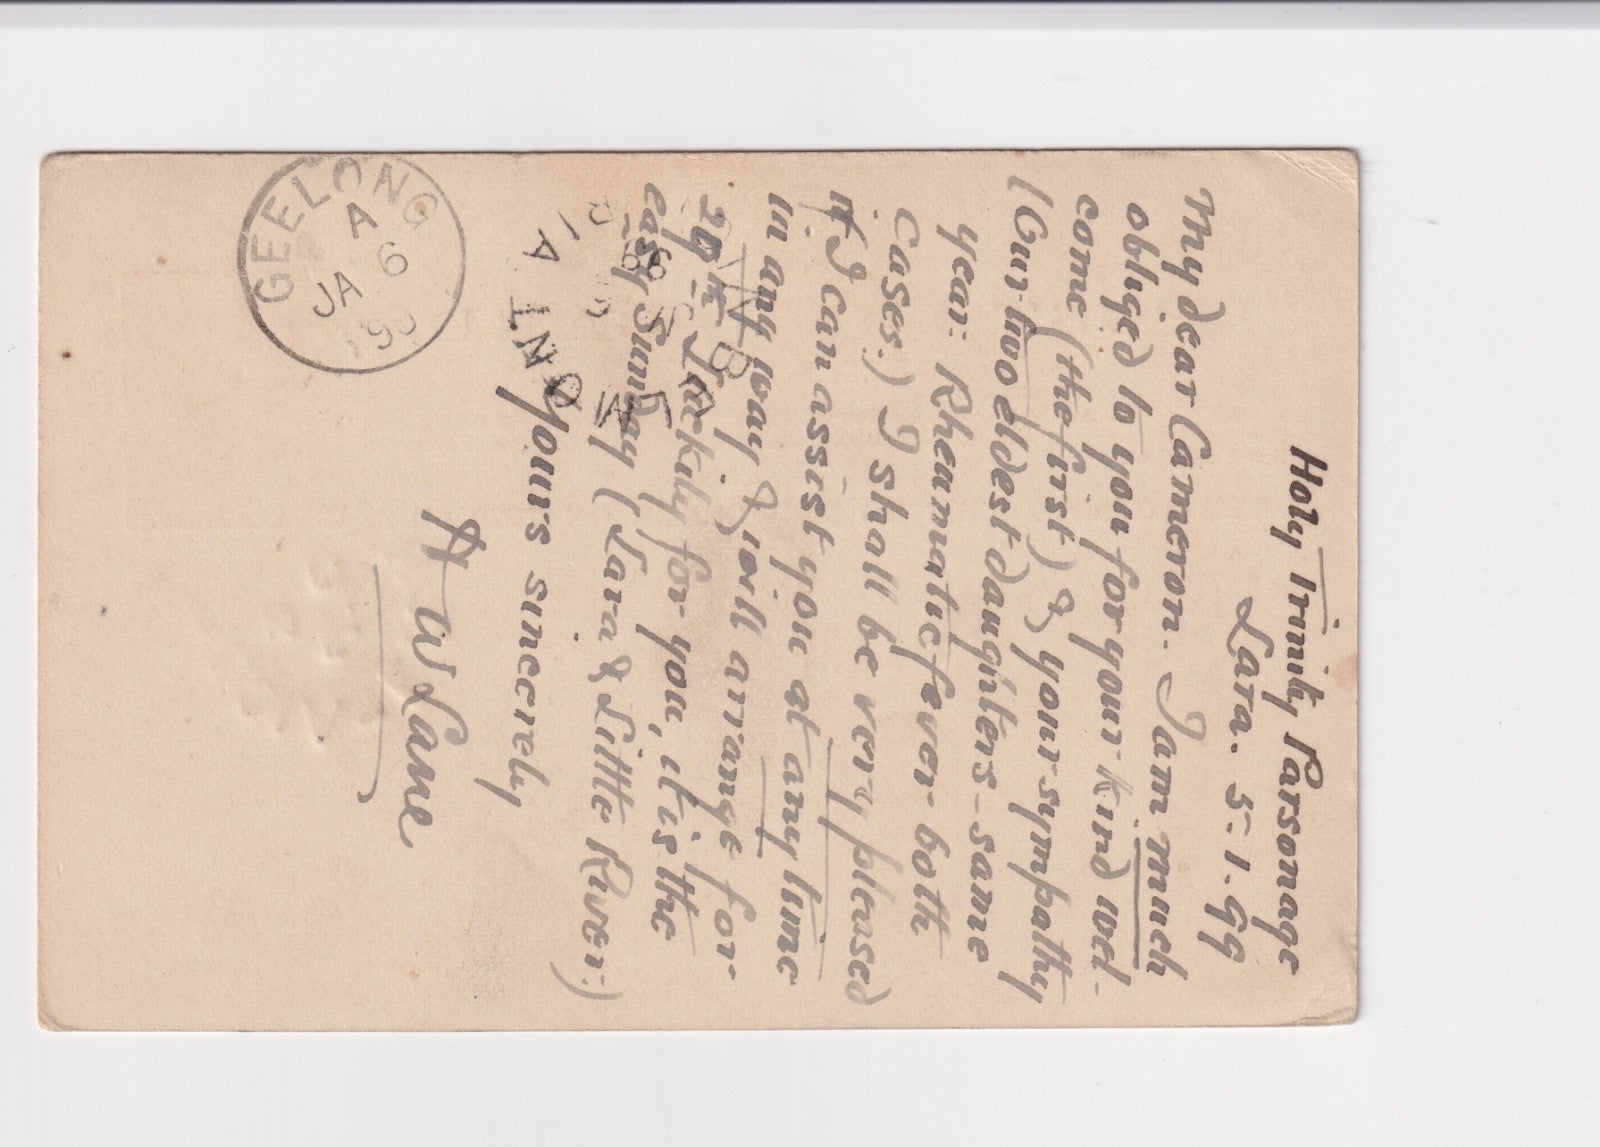 Holy Trinity Parsonage
Lara. 5.1.99
My dear Cameron. I am much
obliged to you for your kind wel-
come (the first) & your sympathy
(Our two eldest daughters - same
year: Rheumatic fever - both
cases.) I shall be very pleased
if I can assist you at any time
in any way & will arrange for
29th. Luckily for you, it is the
easy Sunday (Lara & Little River)
Yours sincerely
A W Lane
GEELONG
A
JA 6
99